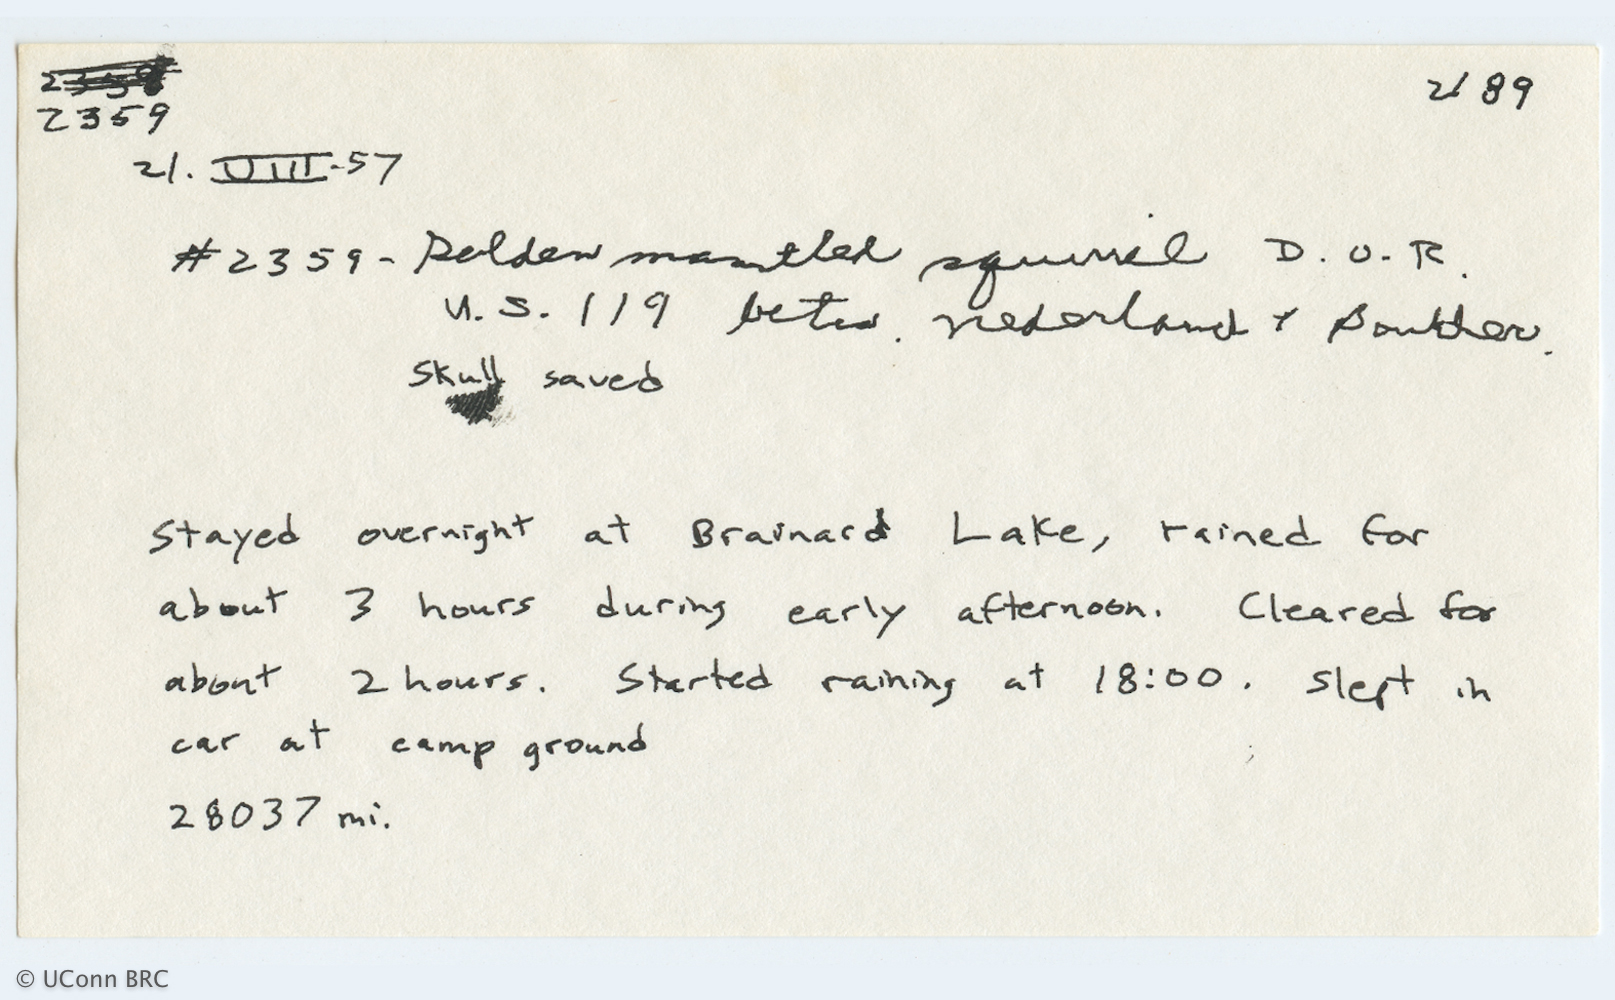 2358
2189
2359
21. VIII-57
#2359 - Golden mantled squirrel D.O.R.
U.S. 119 betw. Nederland & Boulder.
Skull saved
Stayed overnight at Brainard Lake, rained for
about 3 hours during early afternoon. Cleared for
about 2 hours. Started raining at 18:00. Slept in
car at camp ground
28037 mi.
© UConn BRC